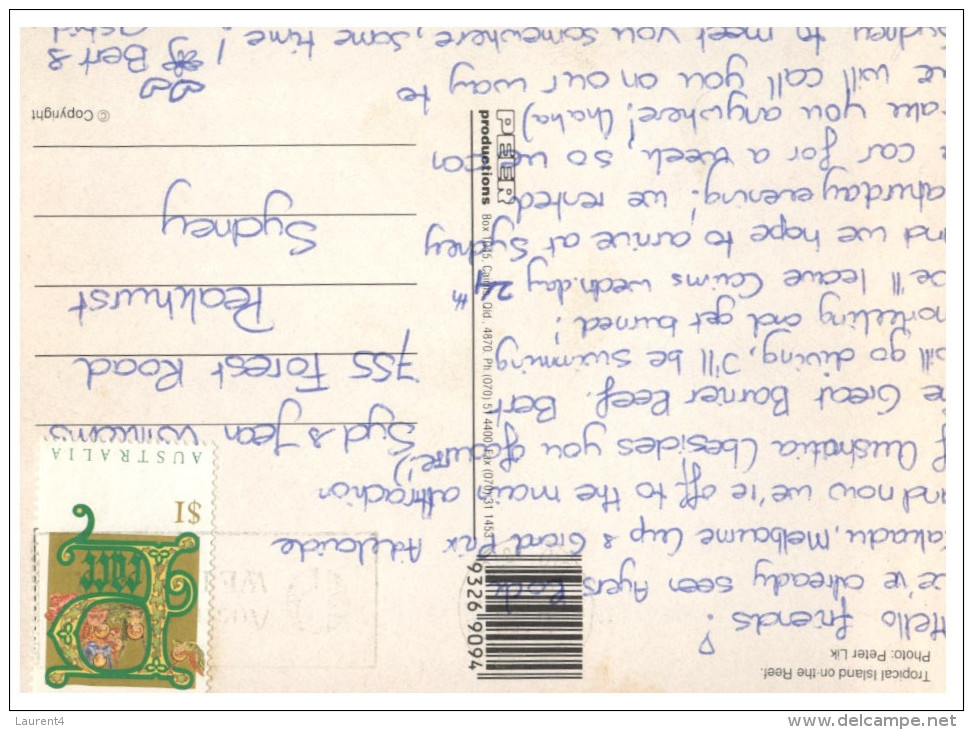 Tropical Island on the Reef.
Photo: Peter Lik
Hello friends!
we've already seen Ayers Rock
Kakadu, Melbourne Cup & Grand Prix Adelaide
and now we're off to the main attraction
of Australia (besides you of course!)
the Great Barrier Reef. Bert
will go diving, I'll be swimming
snorkelling and get burned!
we'll leave Cairns wednday 24th
and we hope to arrive at Sydney
saturday evening; we rented
a car for a week, so we can
take you anywhere! (haha)
we will call you on our way to
Sydney to meet you somewhere, some time!
Bert &
Astrid
9326 9094
PEER
productions Box 1045, Cairns, Qld., 4870. Ph (070) 51 4400 Fax (070) 31 1453
© Copyright
$1
AUSTRALIA
Syd & Jean Williams
755 Forest Road
Peakhurst
Sydney
Laurent4
www.delcampe.net